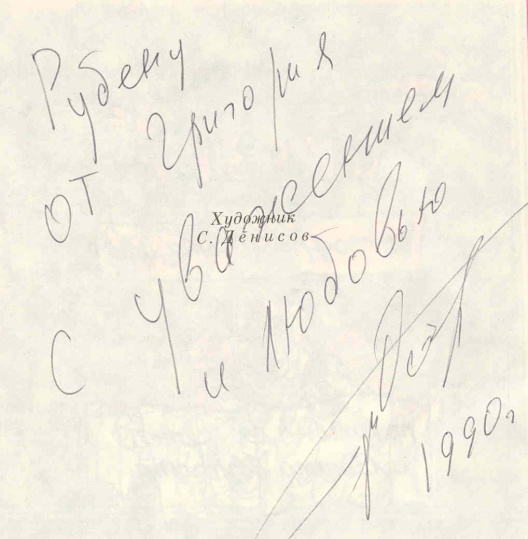 Рубену
от Григория
Художник
С. Денисов
с Уважением
и любовью
1990г